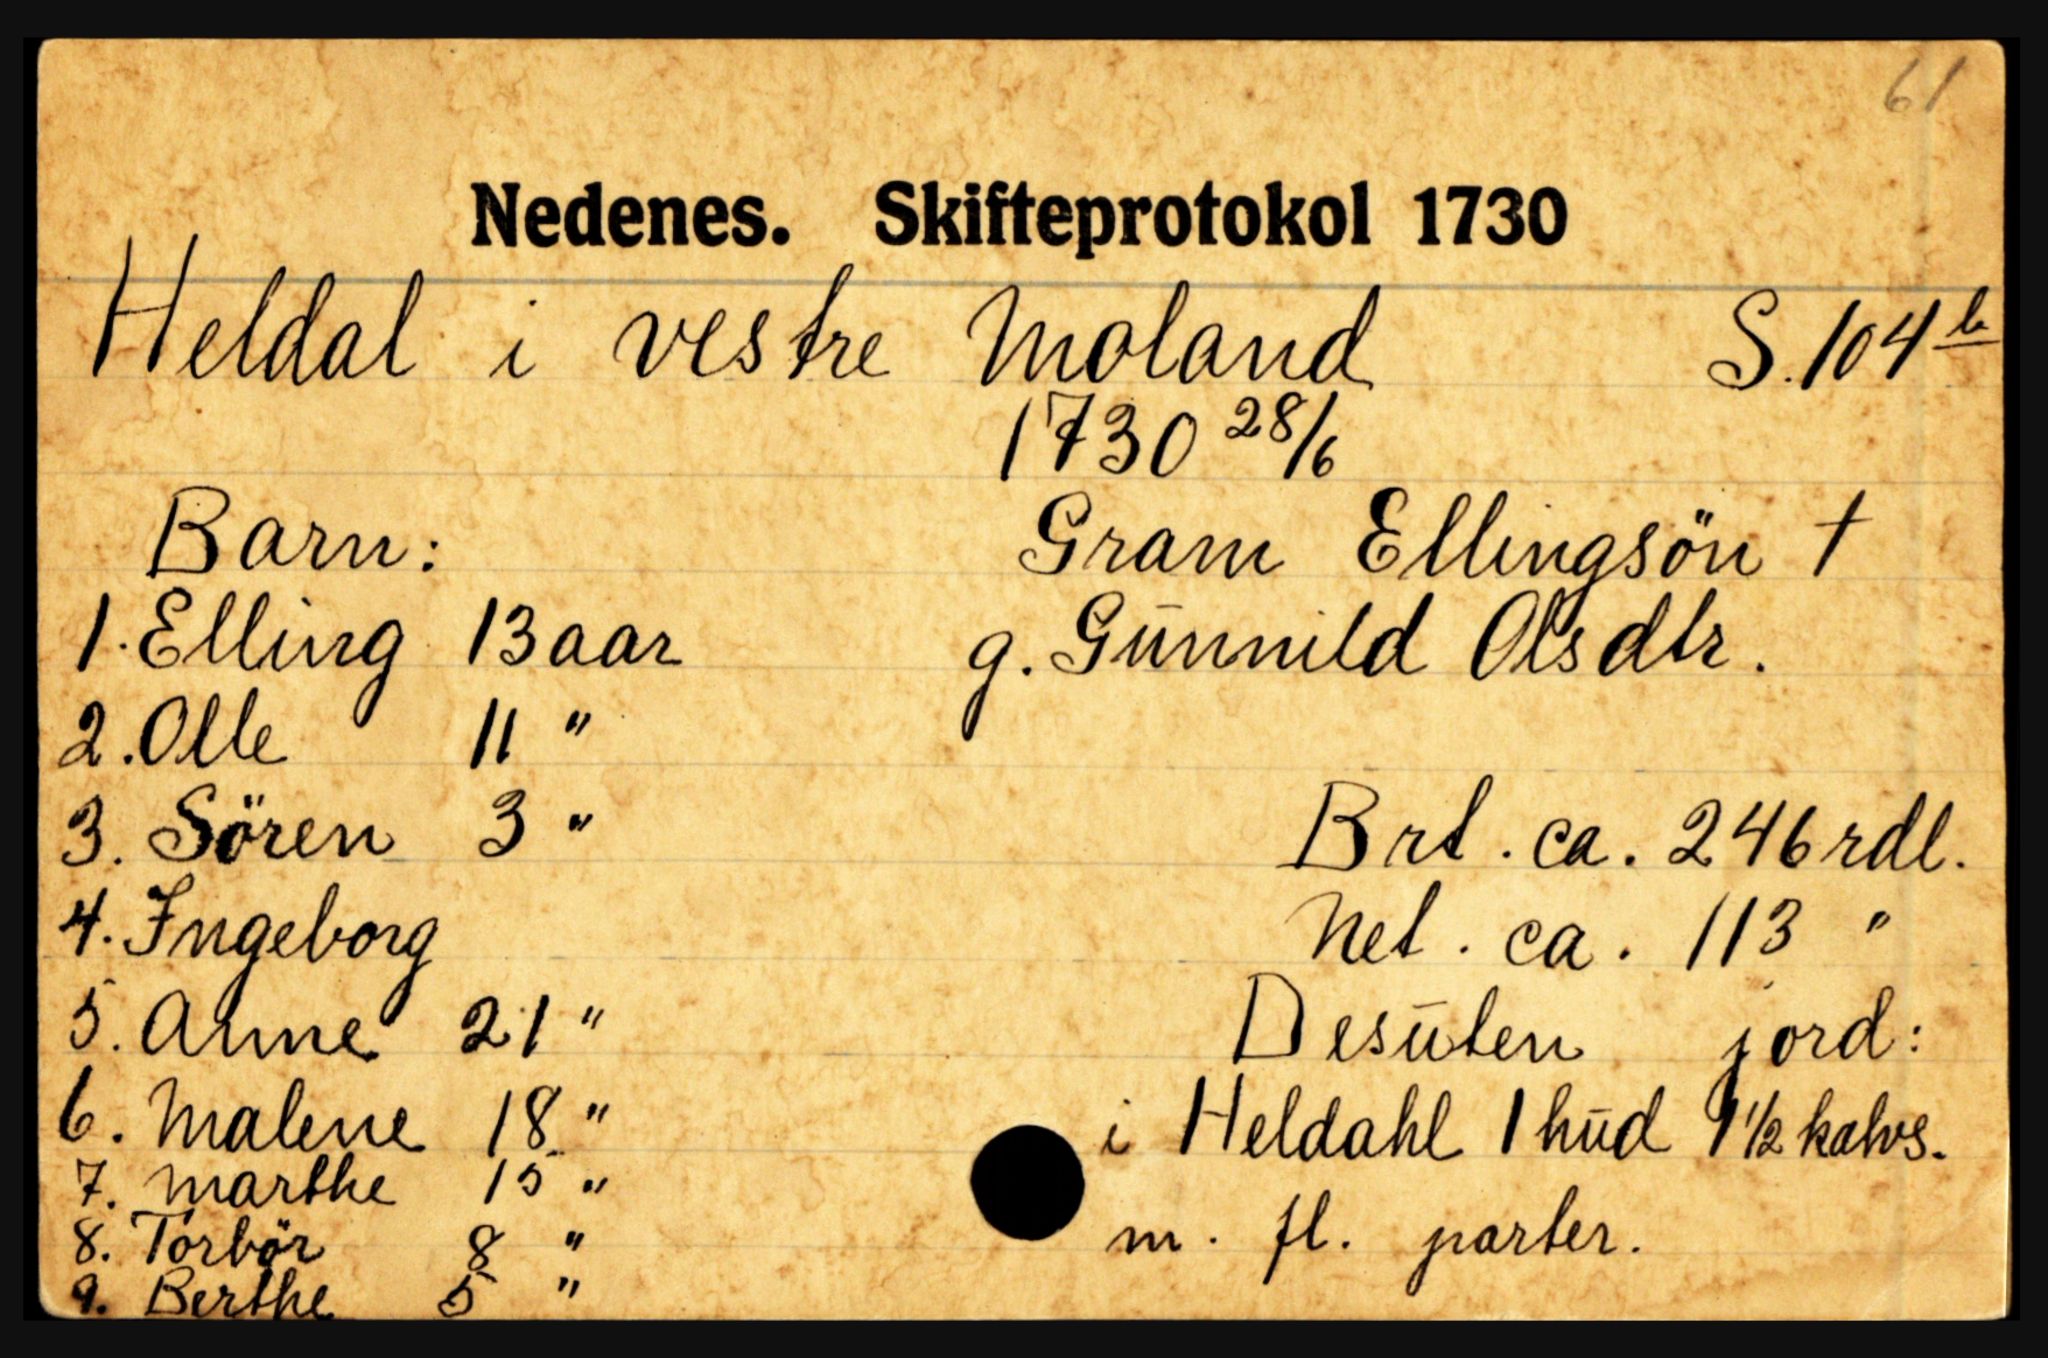 61
Nedenes. Skifteprotokol 1730
Heldal i vestre Moland S. 104 b
1730 28/6
Barn: Gram Ellingsön †
1. Elling 13 aar g. Gunnild Olsdtr.
2. Olle 11 "
3. Sören 3 " Brt. ca. 246 rdl.
4. Ingeborg Net. ca. 113 "
5. Anne 21 " Desuten jord:
6. Malene 18 " i Heldahl 1 hud 9 1/2 kalvs.
7. Marthe 15 "
8. Torbör 8 " m. fl. parter.
9. Berthe 5 "